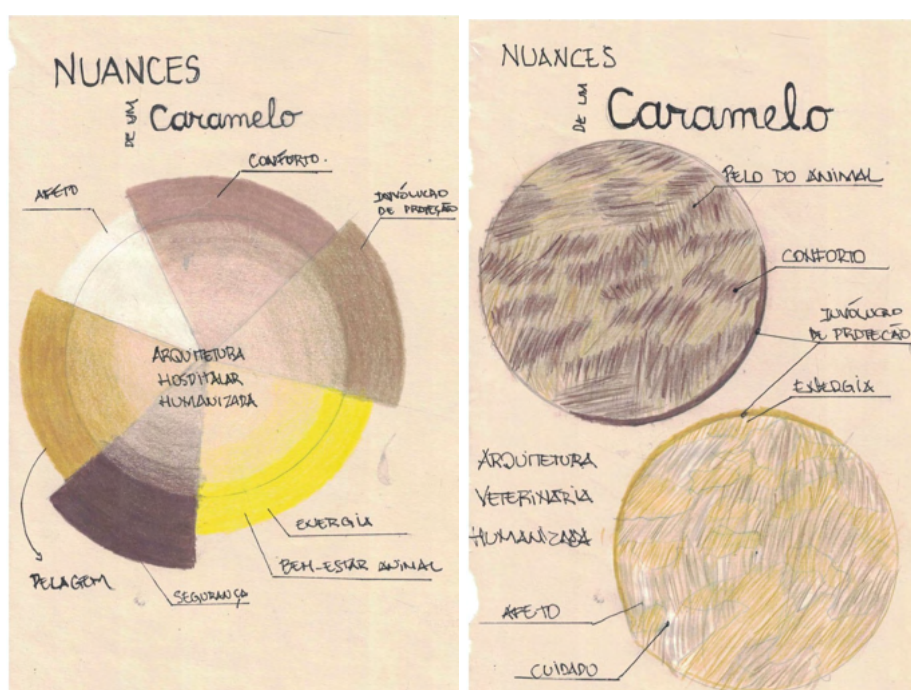 NUANCES
DE UM
Caramelo
CONFORTO.
AFETO
INVÓLUCRO
DE PROTEÇÃO
ARQUITETURA
HOSPITALAR
HUMANIZADA
ENERGIA
BEM-ESTAR ANIMAL
PELAGEM
SEGURANÇA
NUANCES
DE UM
Caramelo
PELO DO ANIMAL
CONFORTO
INVÓLUCRO
DE PROTEÇÃO
ENERGIA
ARQUITETURA
VETERINÁRIA
HUMANIZADA
AFETO
CUIDADO